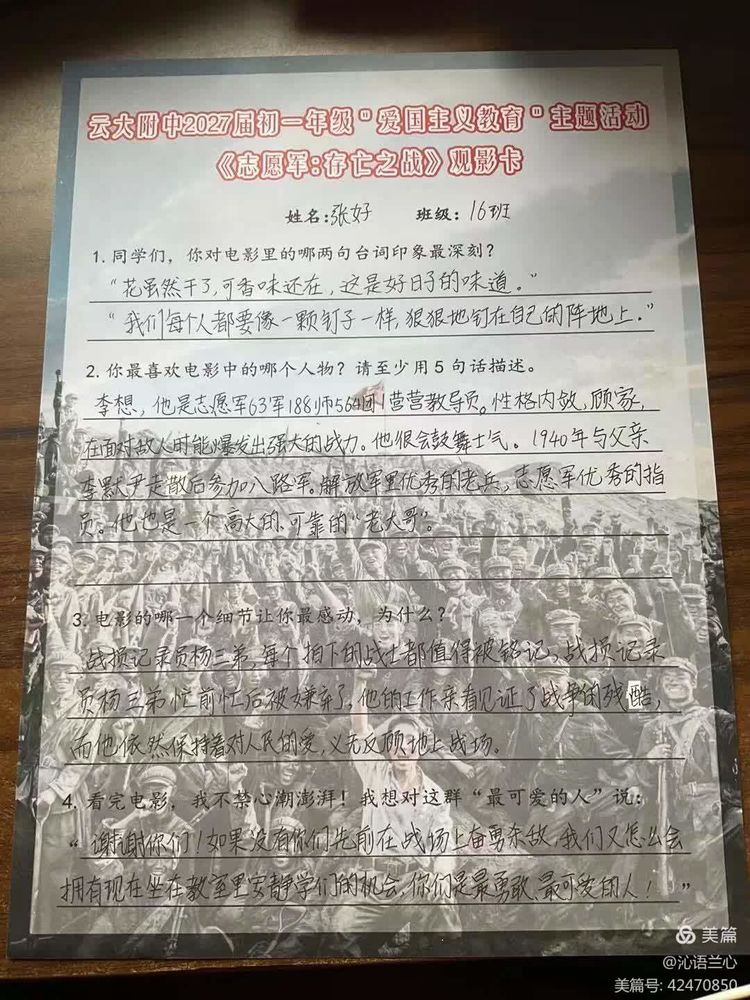 云大附中2027届初一年级"爱国主义教育"主题活动
《志愿军:存亡之战》观影卡
姓名:张好 班级:16班
1.同学们,你对电影里的哪两句台词印象最深刻?
"花虽然干了,可香味还在,这是好日子的味道。"
"我们每个人都要像一颗钉子一样,狠狠地钉在自己的阵地上."
2.你最喜欢电影中的哪个人物?请至少用5句话描述。
李想,他是志愿军63军188师564团1营营教导员。性格内敛,顾家,
在面对敌人时能爆发出强大的战力。他很会鼓舞士气。1940年与父亲
李默尹走散后参加八路军。解放军里优秀的老兵,志愿军优秀的指
员。他也是一个高大的、可靠的"老大哥"。
3.电影的哪一个细节让你最感动,为什么?
战损记录员杨三弟,每个拍下的战士都值得被铭记,战损记录
员杨三弟忙前忙后被嫌弃了,他的工作亲看见证了战争的残酷,
而他依然保持着对人民的爱,义无反顾地上战场。
4.看完电影,我不禁心潮澎湃!我想对这群"最可爱的人"说:
"谢谢你们!如果没有你们先前在战场上奋勇杀敌,我们又怎么会
拥有现在坐在教室里安静学们的机会,你们是最勇敢、最可爱的人! "
美篇
@沁语兰心
美篇号: 42470850